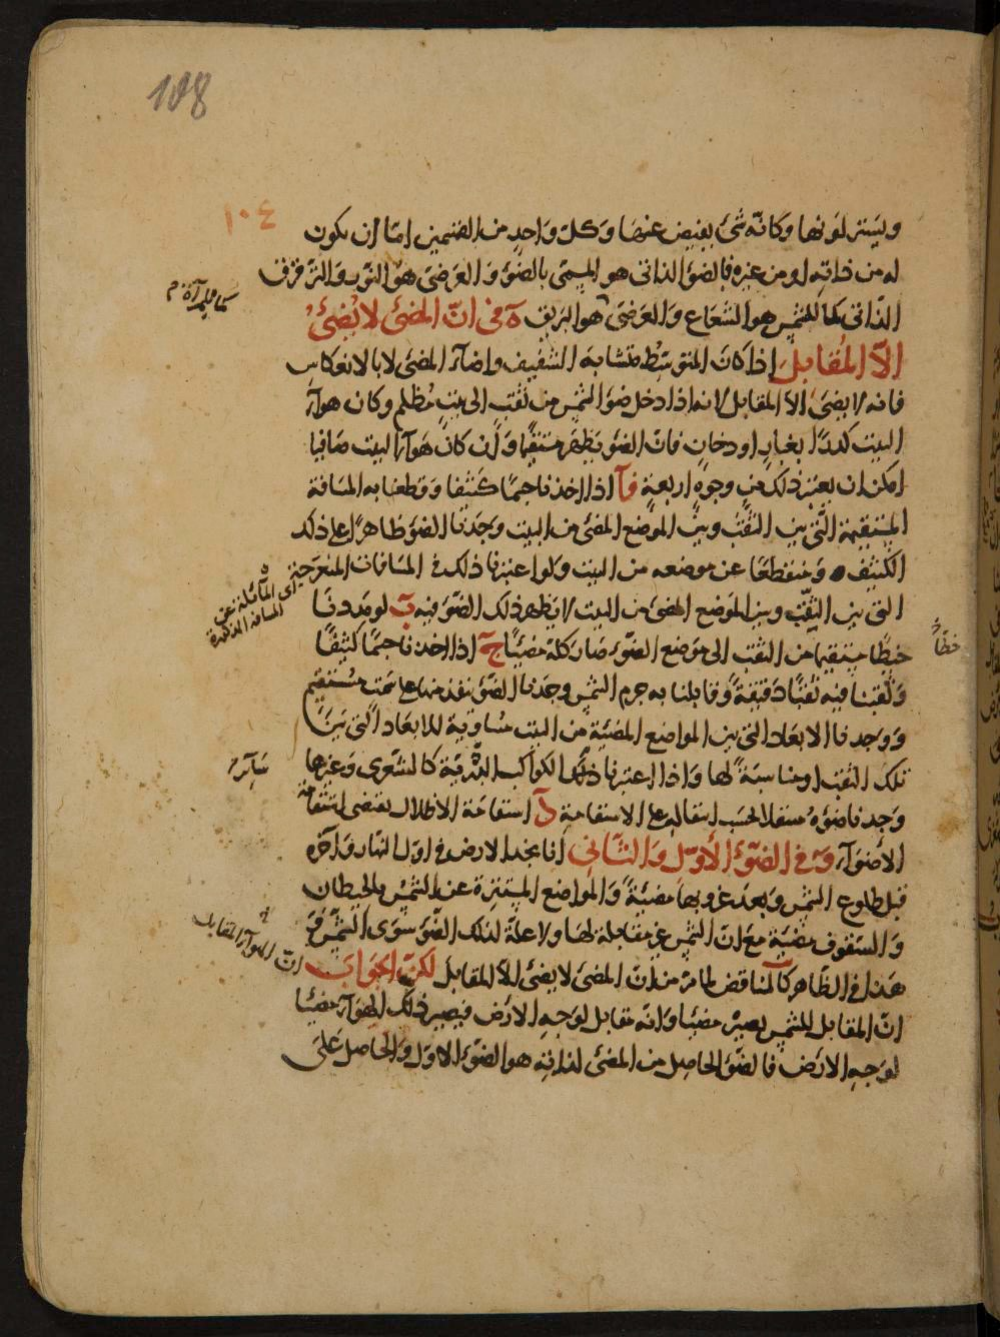 108
١٠٤
ويستر لونها وكانه شئ يفيض عنها وكل واحد من القسمين اما ان يكون
له من ذاته او من غيره فالضوء الذاتى هو المسمى بالضوء والعرضى هو النور والترقرق
الذاتى كما للشمس هو الشعاع والعرضى هو البريق ة فى ان المضئ لا يضئ
كما فى المرآة م
الا المقابل اذا كان المتوسط متشابه الشفيف واضاء المضئ لا بالانعكاس
فانه لا يضئ الا المقابل لانه اذا دخل ضوء الشمس من ثقب الى بيت مظلم وكان هواء
البيت كدرا بغبار او دخان فان الضوء يظهر مستقيما وان كان هواء البيت صافيا
امكن ان يعتبر ذلك من وجوه اربعة فآ اذا اخذنا جسما كثيفا وقطعنا به المسافة
المستقيمة التى بين الثقب وبين الموضع المضئ من البيت وجدنا الضوء ظاهرا على ذلك
الكثيف ومنقطعا عن موضعه من البيت ولو اعتبرنا ذلك فى المسافات المنعرجة
اى المائلة عن
المسافة المذكورة
التى بين الثقب وبين الموضع المضئ من البيت لا يظهر ذلك الضوء فيه ب لو مددنا
خيطا مستقيما من الثقب الى موضع الضوء صار كله مضيئا ج اذا اخذنا جسما كثيفا
خطا
وثقبنا فيه ثقبا دقيقة وقابلنا به جرم الشمس وجدنا الضوء ينفذ منها على سمت مستقيم
ووجدنا الابعاد التى بين المواضع المضيئة من البيت مساوية للابعاد التى بين
تلك الثقب او مناسبة لها واذا اعتبرنا ذلك الكواكب الدرية كالشعرى وغيرها
سائر
وجدنا ضوءه منتقلا بحسب انتقاله على الاستقامة د استقامة الاظلال يقتضى استقامة
الاضواء و فى الضوء الاول والثانى انا نجد الارض فى اول النهار وآخره
قبل طلوع الشمس وبعد غروبها مضيئة والمواضع المستترة عن الشمس بالحيطان
والسقوف مضيئة مع ان الشمس غير مقابلة لها ولا علة لذلك الضوء سوى الشمس و
هذا فى الظاهر كالمناقض لما مر من ان المضئ لا يضئ الا المقابل لكن الجواب
ان الهواء المقابل
ان المقابل للشمس يصير مضيئا وانه مقابل لوجه الارض فيصير ذلك الهواء مضيئا
لوجه الارض فالضوء الحاصل من المضئ لذاته هو الضوء الاول والحاصل على